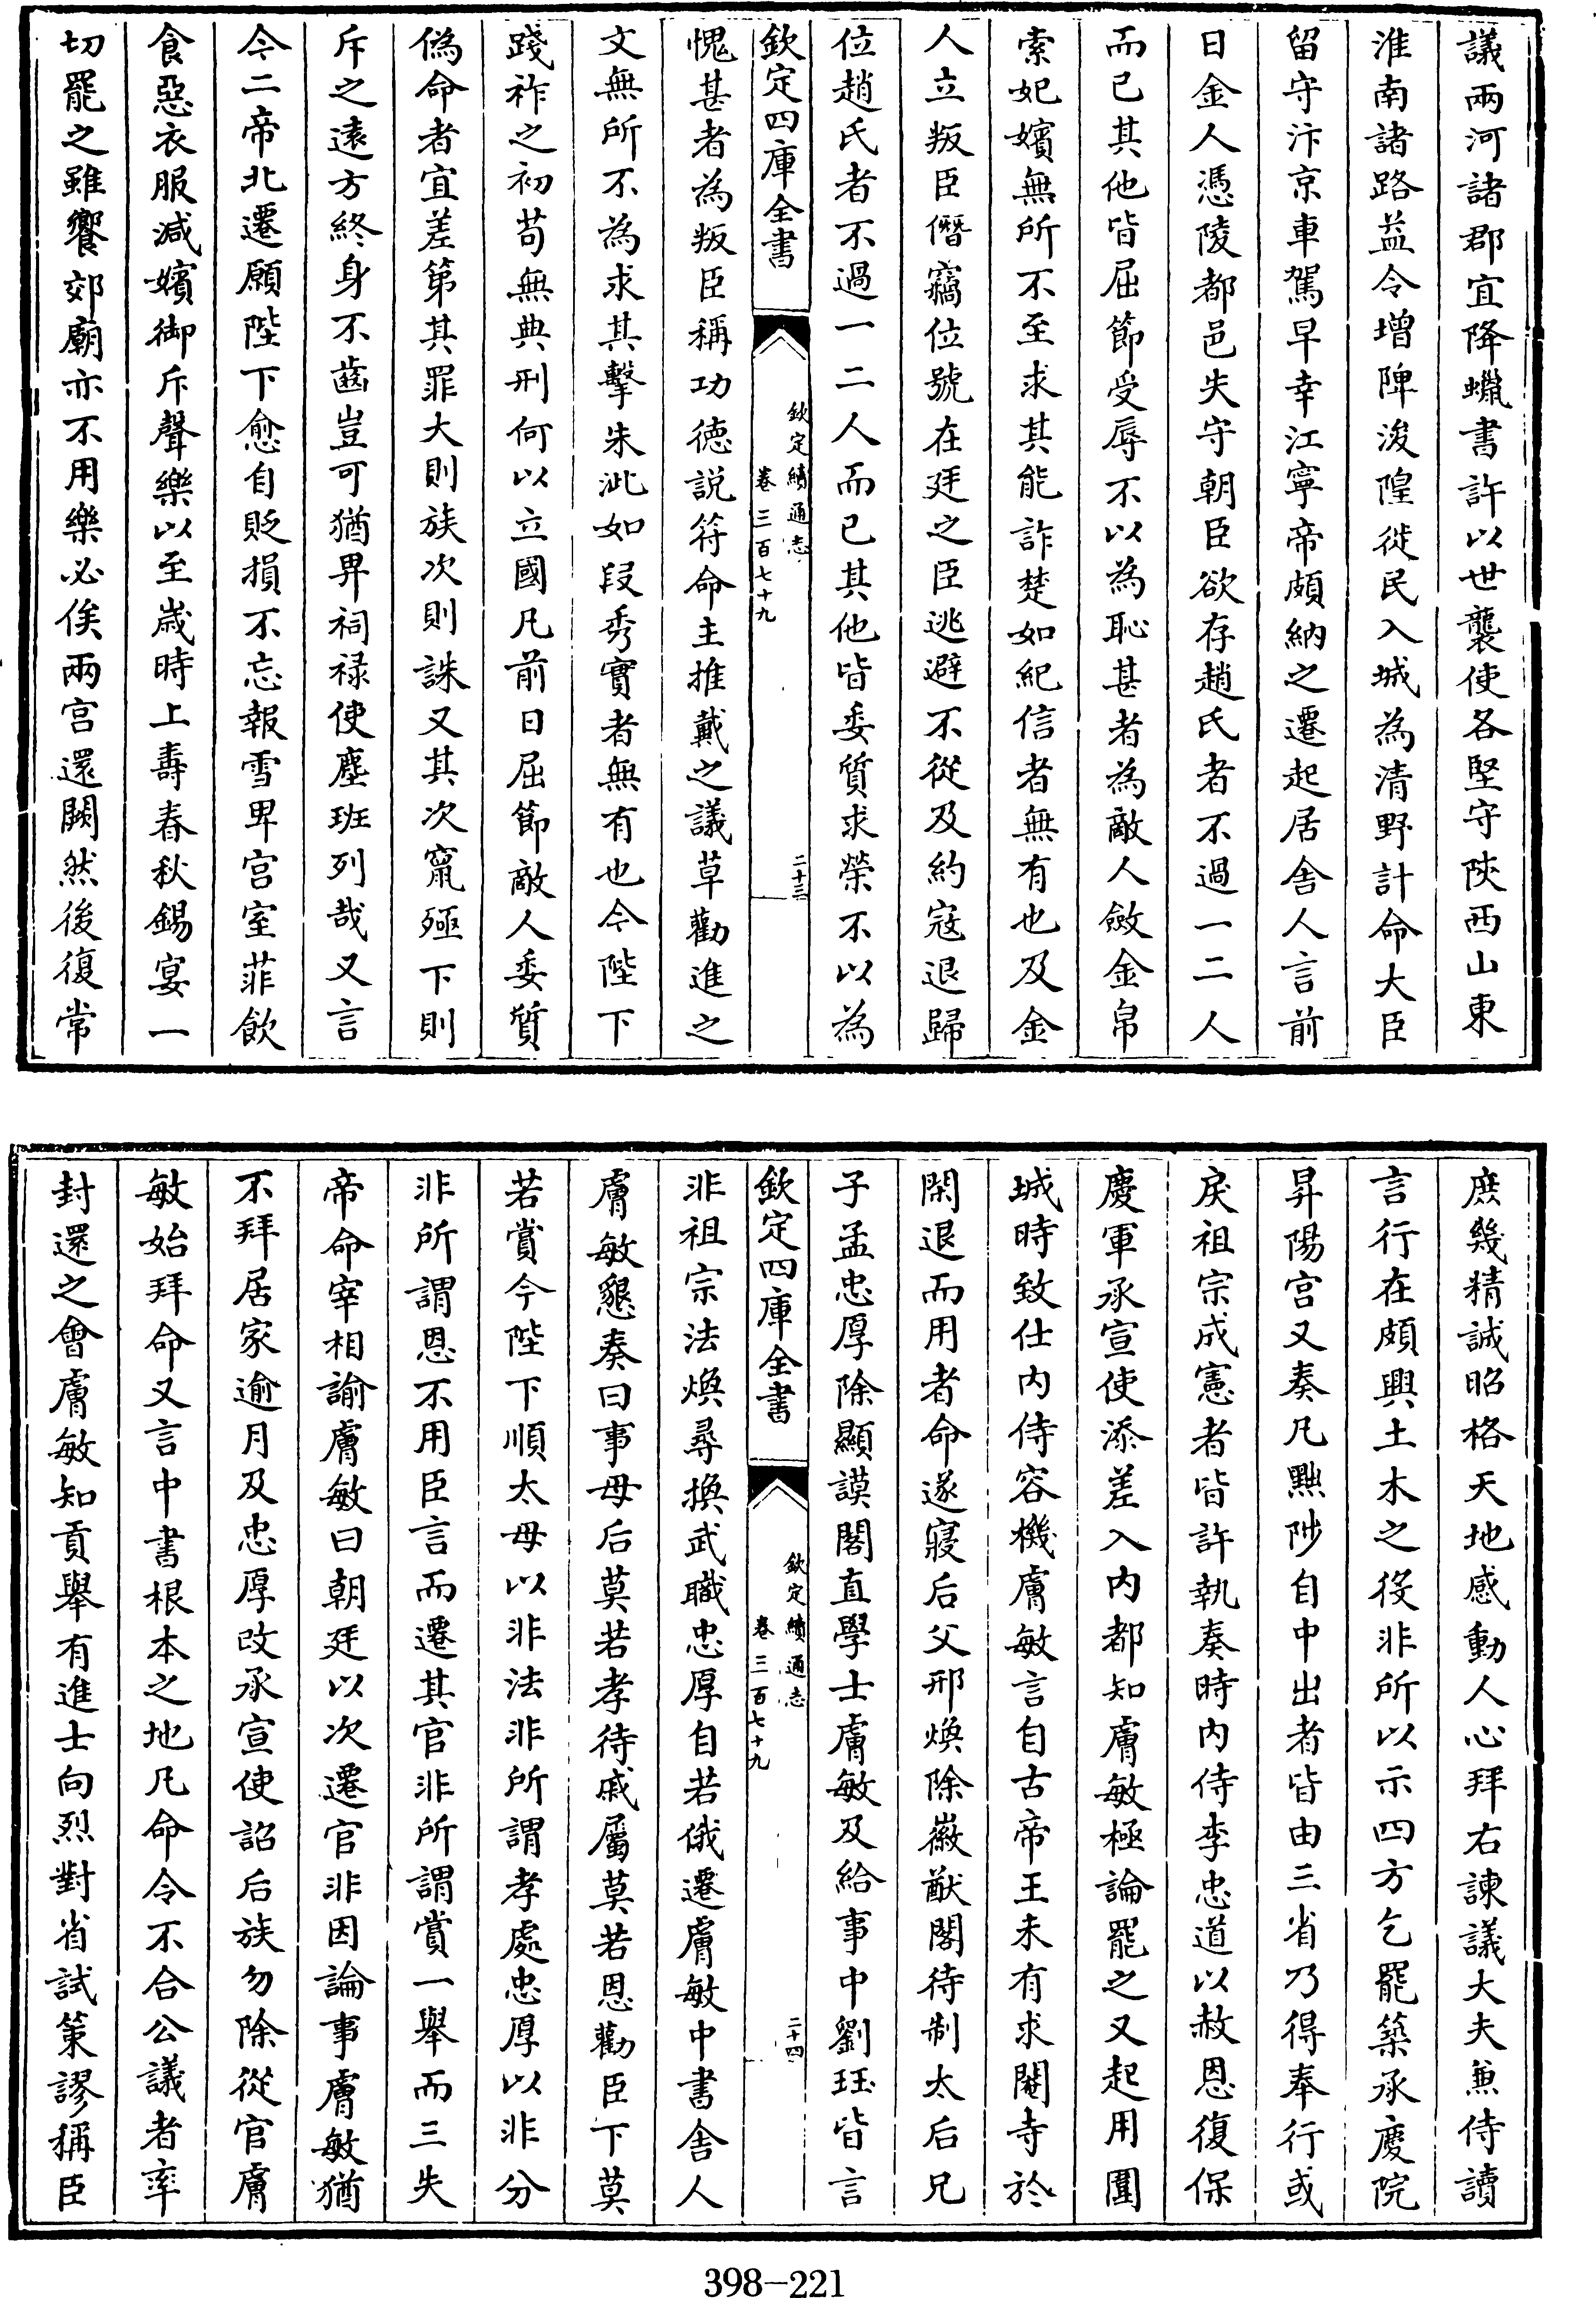 議兩河諸郡宜降蠟書許以世襲使各堅守陜西山東
淮南諸路益令增陴浚隍徙民入城為清野計命大臣
留守汴京車駕早幸江寧帝頗納之遷起居舍人言前
日金人憑陵都邑失守朝臣欲存趙氏者不過一二人
而已其他皆屈節受辱不以為恥甚者為敵人斂金帛
索妃嬪無所不至求其能詐楚如紀信者無有也及金
人立叛臣僭竊位號在廷之臣逃避不從及約寇退歸
位趙氏者不過一二人而已其他皆委質求榮不以為
欽定四庫全書
欽定續通志
卷三百七十九
二十三
愧甚者為叛臣稱功徳説符命主推戴之議草勸進之
文無所不為求其擊朱泚如段秀實者無有也今陛下
踐祚之初苟無典刑何以立國凡前日屈節敵人委質
偽命者宜差第其罪大則族次則誅又其次竄殛下則
斥之逺方終身不齒豈可猶畀祠禄使塵班列哉又言
今二帝北遷願陛下愈自貶損不忘報雪卑宫室菲飲
食惡衣服減嬪御斥聲樂以至嵗時上壽春秋錫宴一
切罷之雖饗郊廟亦不用樂必俟兩宫還闕然後復常
庶幾精誠昭格天地感動人心拜右諫議大夫兼侍讀
言行在頗興土木之役非所以示四方乞罷築承慶院
昇陽宫又奏凡黜陟自中出者皆由三省乃得奉行或
戾祖宗成憲者皆許執奏時内侍李忠道以赦恩復保
慶軍承宣使添差入内都知膚敏極論罷之又起用圍
城時致仕内侍容機膚敏言自古帝王未有求閹寺於
閑退而用者命遂寢后父邢煥除徽猷閣待制太后兄
子孟忠厚除顯謨閣直學士膚敏及給事中劉珏皆言
欽定四庫全書
欽定續通志
卷三百七十九
二十四
非祖宗法煥尋換武職忠厚自若俄遷膚敏中書舍人
膚敏懇奏曰事母后莫若孝待戚屬莫若恩勸臣下莫
若賞今陛下順太母以非法非所謂孝處忠厚以非分
非所謂恩不用臣言而遷其官非所謂賞一舉而三失
帝命宰相諭膚敏曰朝廷以次遷官非因論事膚敏猶
不拜居家逾月及忠厚改承宣使詔后族勿除從官膚
敏始拜命又言中書根本之地凡命令不合公議者率
封還之會膚敏知貢舉有進士向烈對省試策謬稱臣
398-221